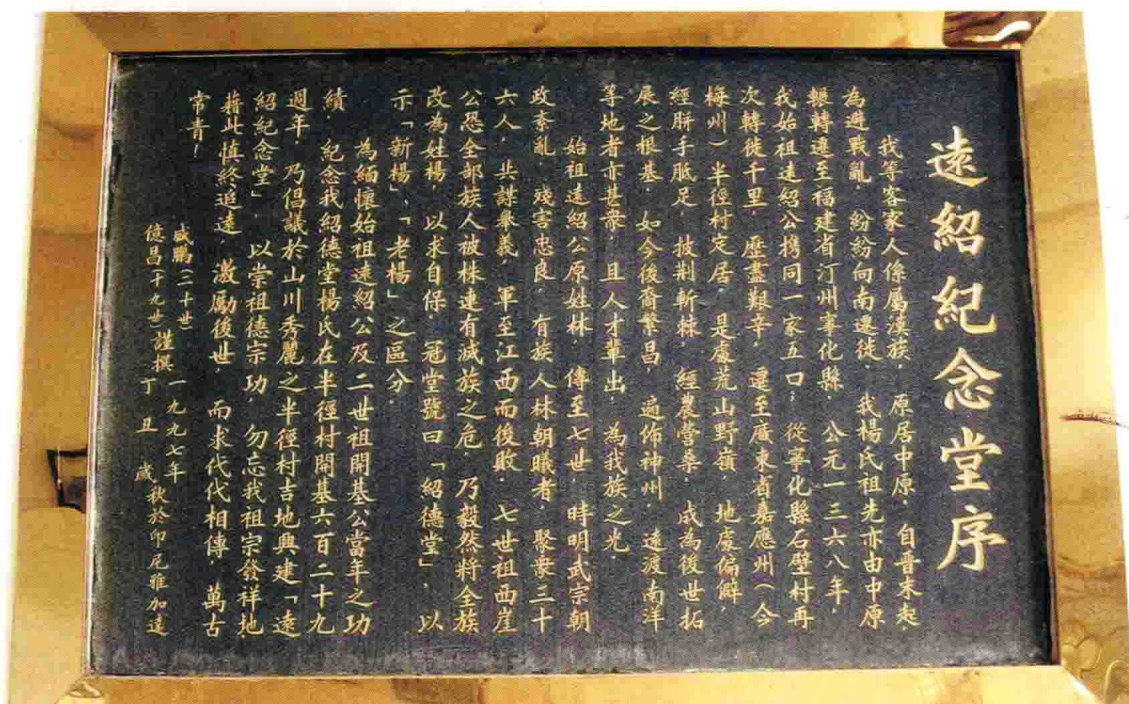 遠紹紀念堂序
我等客家人係屬漢族，原居中原，自晉末起，
為避戰亂，紛紛向南遷徙，我楊氏祖先亦由中原
輾轉遷至福建省汀州寧化縣．公元一三六八年，
我始祖遠紹公携同一家五口；從寧化縣石壁村再
次轉徙千里，歷盡艱辛，遷至廣東省嘉應州（今
梅州）半徑村定居．是處荒山野嶺，地處偏僻，
經胼手胝足，披荆斬棘，經農營桑，成為後世拓
展之根基．如今後裔繁昌，遍佈神州，遠渡南洋
等地者亦甚衆，且人才輩出，為我族之光．
始祖遠紹公原姓林，傳至七世，時明武宗朝
政紊亂，殘害忠良，有族人林朝曦者，聚衆三十
六人，共謀舉義，軍至江西而後敗．七世祖西崖
公恐全部族人被株連有滅族之危，乃毅然將全族
改為姓楊，以求自保，冠堂號曰「紹德堂」，以
示「新楊」、「老楊」之區分．
為緬懷始祖遠紹公及二世祖開基公當年之功
績，紀念我紹德堂楊氏在半徑村開基六百二十九
週年，乃倡議於山川秀麗之半徑村吉地興建「遠
紹紀念堂」，以崇祖德宗功，勿忘我祖宗發祥地
藉此慎終追遠，激勵後世，而求代代相傳，萬古
常青！
威鵬（二十世）
億昌（十九世）
謹撰
一九九七年
丁丑歲秋於印尼雅加達